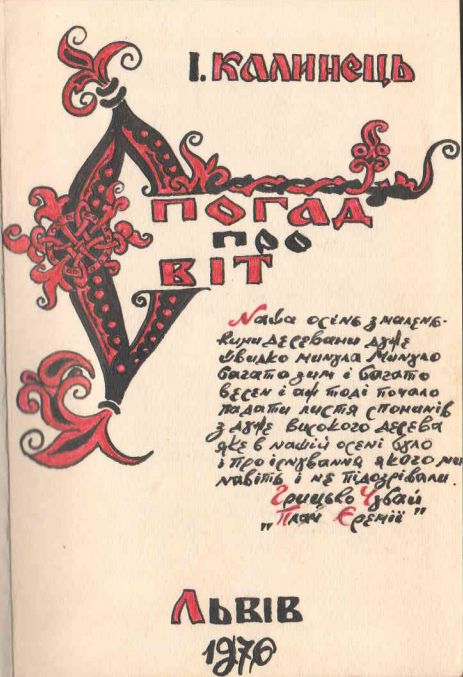 І. КАЛИНЕЦЬ
СПОГАД
ПРО
СВІТ
Наша осінь з малень-
кими деревами дуже
швидко минула Минуло
багато зим і багато
весен і аж тоді почало
падати листя споминів
з дуже високого дерева
яке в нашій осені було
і про існування якого ми
навіть і не підозрівали.
Грицько Чубай
„Плач Єремії"
ЛЬВІВ
1970